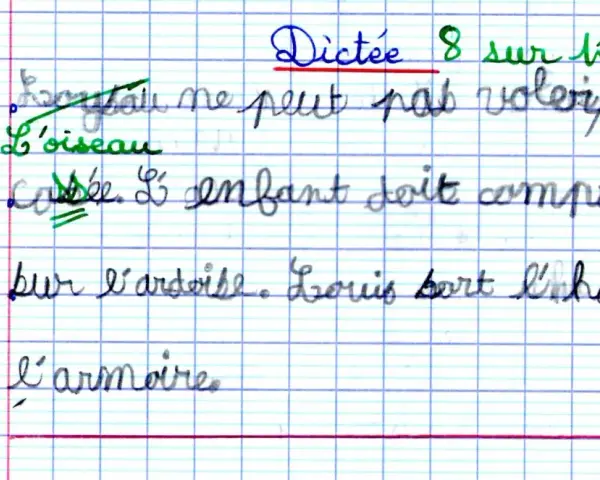 Dictée 8 sur
ne peut pas voler,
L'oiseau
L'enfant doit comp
sur l'ardoise. Louis sort l'h
l'armoire.